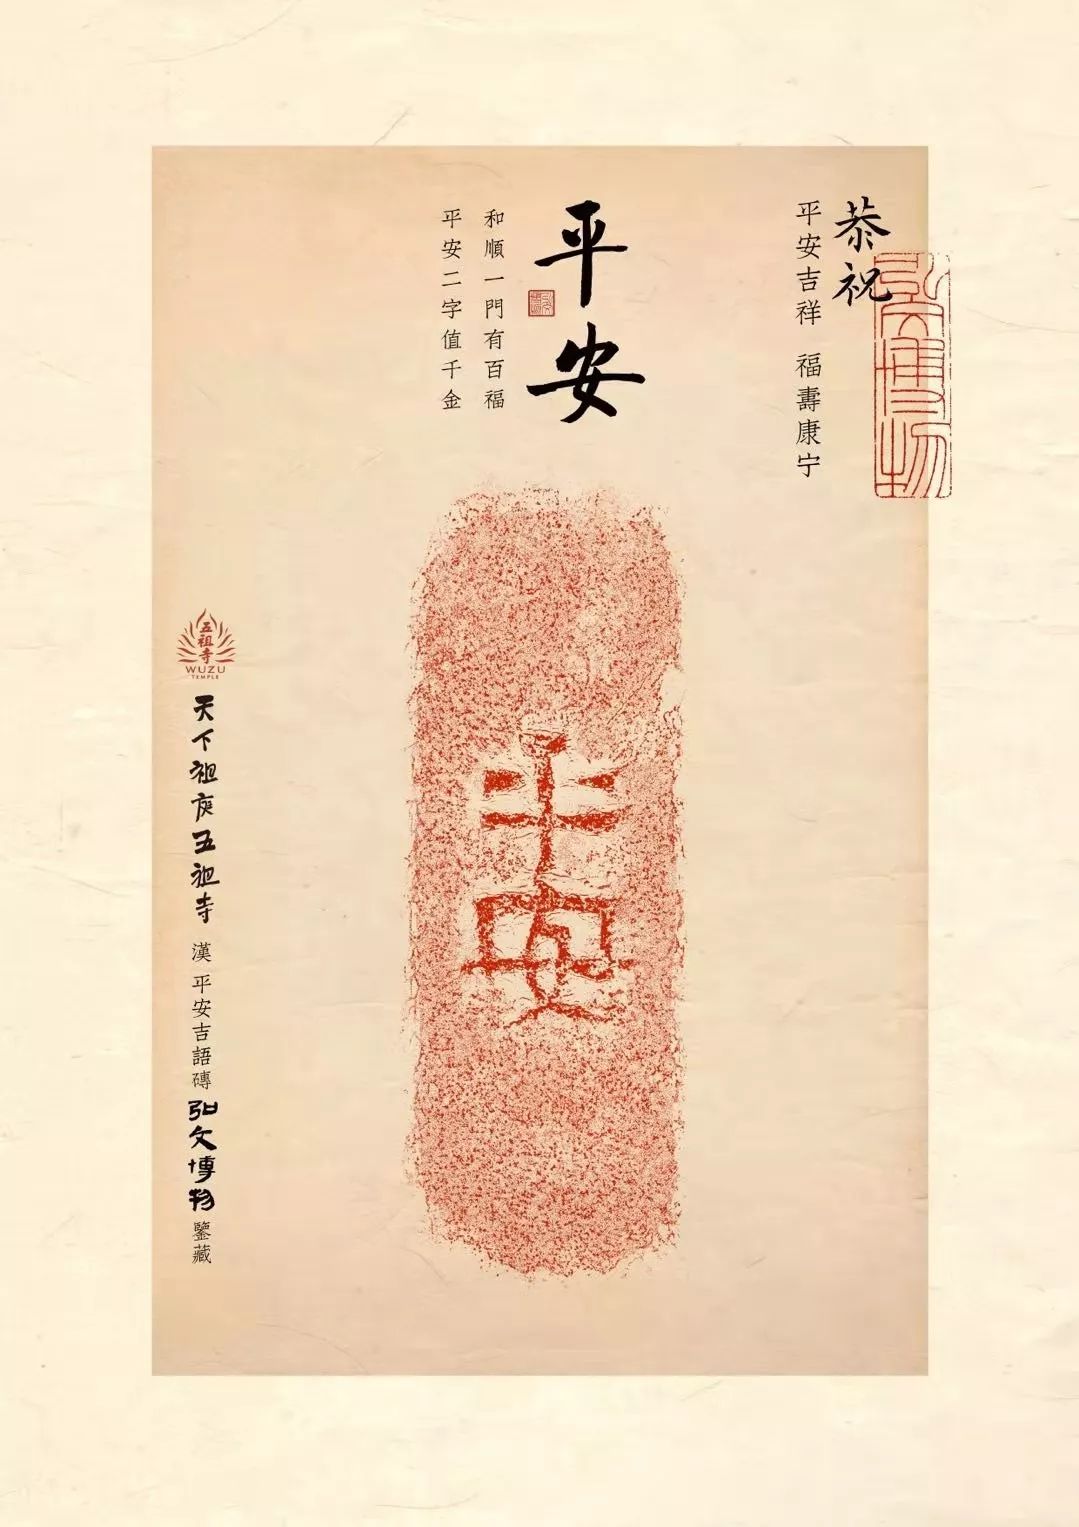 恭祝
平安吉祥 福壽康宁
弘文博物
平安
和順一門有百福
平安二字值千金
平安
五祖寺
WUZU
TEMPLE
天下祖庭五祖寺 漢 平安吉語磚 弘文博物 鑒藏